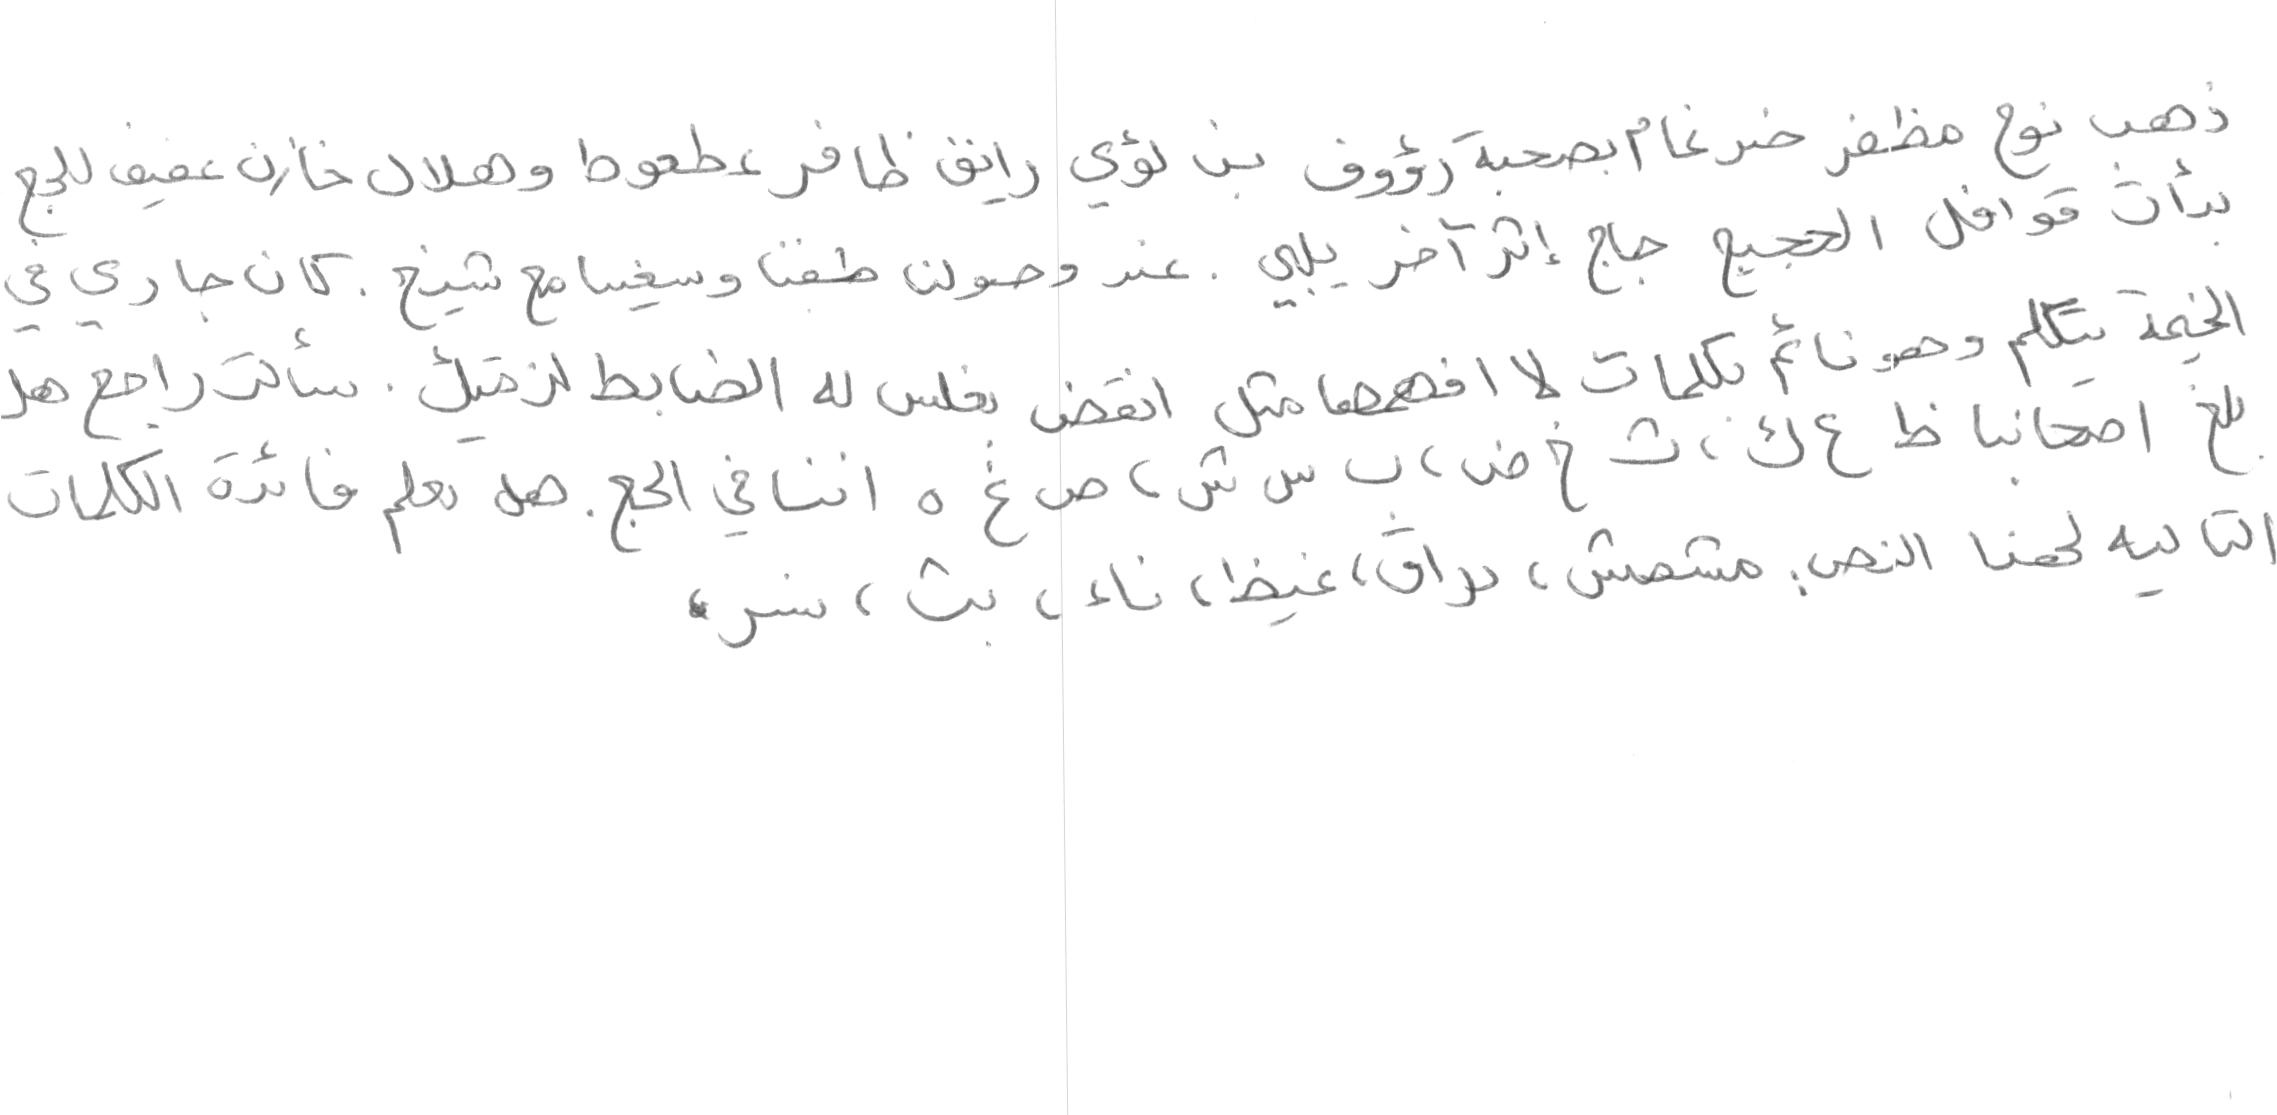 ذهب نوح مظفر ضرغام بصحبة رؤوف بن لؤي رائق ظافر عطعوط وهلال خازن عفيف للحج
بدأت قوافل الحجيج حاج إثر آخر يلبي . عند وصولنا طفنا وسعينا مع شيخ . كان جاري في
الخيمة يتكلم وهو نائم بكلمات لا افهمها مثل انقض بغلس له الضابط لزميلك . سألت راجح هل
بلغ اصحابنا ظ ع ك ، ث خ ض ، ب س ش ، ص غ ه اننا في الحج . هل تعلم فائدة الكلمات
التاليه لهذا النص : مشمش ، براق ، غيظ ، ناء ، بث ، نسر ،